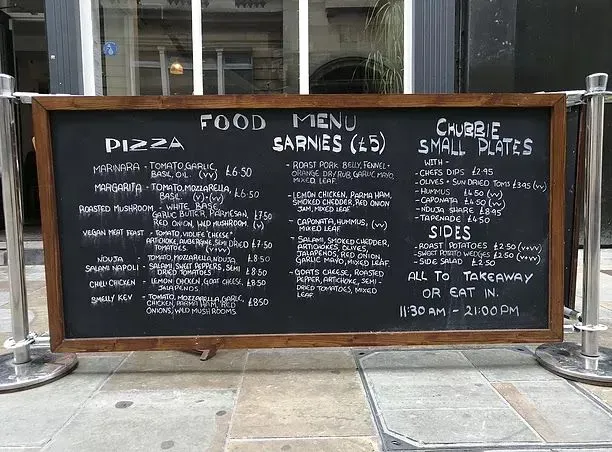 FOOD MENU
PIZZA
MARINARA - TOMATO, GARLIC,
BASIL, OIL. (VV) £6.50
MARGARITA - TOMATO, MOZZARELLA,
BASIL (V) - (VV) £6.50
ROASTED MUSHROOM - WHITE BASE,
GARLIC BUTTER, PARMESAN, £7.50
RED ONION, WILD MUSHROOM. (V)
VEGAN MEAT FEAST - TOMATO, VIOLIFE CHEESE
ARTICHOKE, AUBERGINE, SEMI DRIED £7.50
TOMATOES (V+VV)
NDUJA - TOMATO, MOZZARELLA, NDUJA £8.50
SALAMI NAPOLI - SALAMI, SWEET PEPPERS, SEMI
DRIED TOMATOES £8.50
CHILLI CHICKEN - LEMON CHICKEN, GOAT CHEESE, £8.50
JALAPENOS
SMELLY KEV - TOMATO, MOZZARELLA, GARLIC,
CHICKEN, PARMA HAM, RED £8.50
ONIONS, WILD MUSHROOMS
SARNIES (£5)
- ROAST PORK BELLY, FENNEL -
ORANGE DRY RUB, GARLIC MAYO,
MIXED LEAF
- LEMON CHICKEN, PARMA HAM,
SMOKED CHEDDER, RED ONION
JAM, MIXED LEAF
- CAPONATA, HUMMUS, (VV)
MIXED LEAF
- SALAMI, SMOKED CHEDDER,
ARTICHOKES, OLIVES,
JALAPENOS, RED ONION,
GARLIC MAYO, MIXED LEAF
- GOATS CHEESE, ROASTED
PEPPER, ARTICHOKE, SEMI-
DRIED TOMATOES, MIXED
LEAF
CHUBBIE
SMALL PLATES
WITH -
- CHEFS DIPS £2.95
- OLIVES + SUN DRIED TOMS £3.95 (VV)
- HUMMUS £4.50 (VV)
- CAPONATA £4.50 (VV)
- NDUJA SHARE £8.95
- TAPENADE £4.50
SIDES
- ROAST POTATOES £2.50 (V+VV)
- SWEET POTATO WEDGES £2.50 (V+VV)
- SIDE SALAD £2.50
ALL TO TAKEAWAY
OR EAT IN.
11:30 AM - 21:00 PM